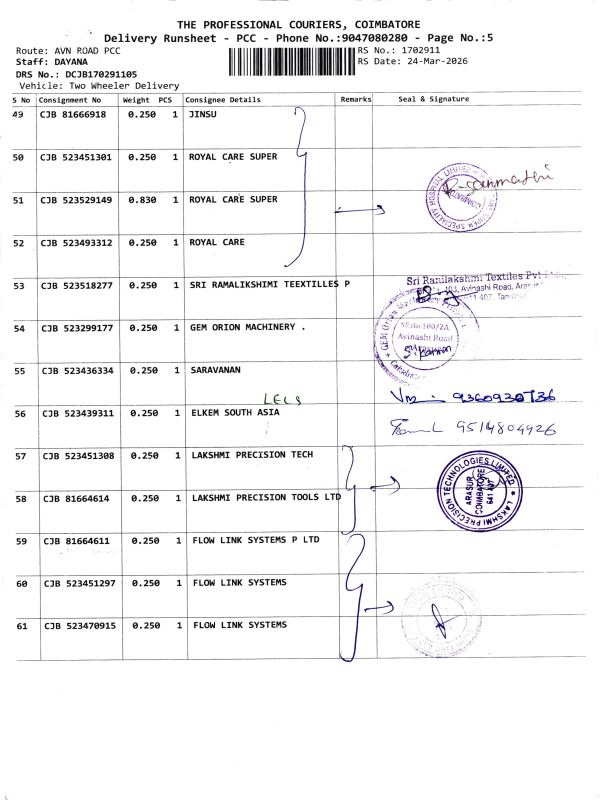 THE PROFESSIONAL COURIERS, COIMBATORE
Delivery Runsheet - PCC - Phone No.:9047080280 - Page No.:5
Route: AVN ROAD PCC
RS No.: 1702911
Staff: DAYANA
RS Date: 24-Mar-2026
DRS No.: DCJB170291105
Vehicle: Two Wheeler Delivery
S No Consignment No Weight PCS Consignee Details Remarks Seal & Signature
49 CJB 81666918 0.250 1 JINSU
50 CJB 523451301 0.250 1 ROYAL CARE SUPER
51 CJB 523529149 0.830 1 ROYAL CARE SUPER
52 CJB 523493312 0.250 1 ROYAL CARE
53 CJB 523518277 0.250 1 SRI RAMALIKSHIMI TEEXTILLES P
Sri Ranilakshmi Textiles Pvt
Avinashi Road,
54 CJB 523299177 0.250 1 GEM ORION MACHINERY .
Avinashi Road
55 CJB 523436334 0.250 1 SARAVANAN
9360930736
56 CJB 523439311 0.250 1 ELKEM SOUTH ASIA
9514804926
57 CJB 523451308 0.250 1 LAKSHMI PRECISION TECH
LAKSHMI PRECISION TECHNOLOGIES LIMITED
ARASUR
COIMBATORE
641 407
58 CJB 81664614 0.250 1 LAKSHMI PRECISION TOOLS LTD
59 CJB 81664611 0.250 1 FLOW LINK SYSTEMS P LTD
60 CJB 523451297 0.250 1 FLOW LINK SYSTEMS
61 CJB 523470915 0.250 1 FLOW LINK SYSTEMS